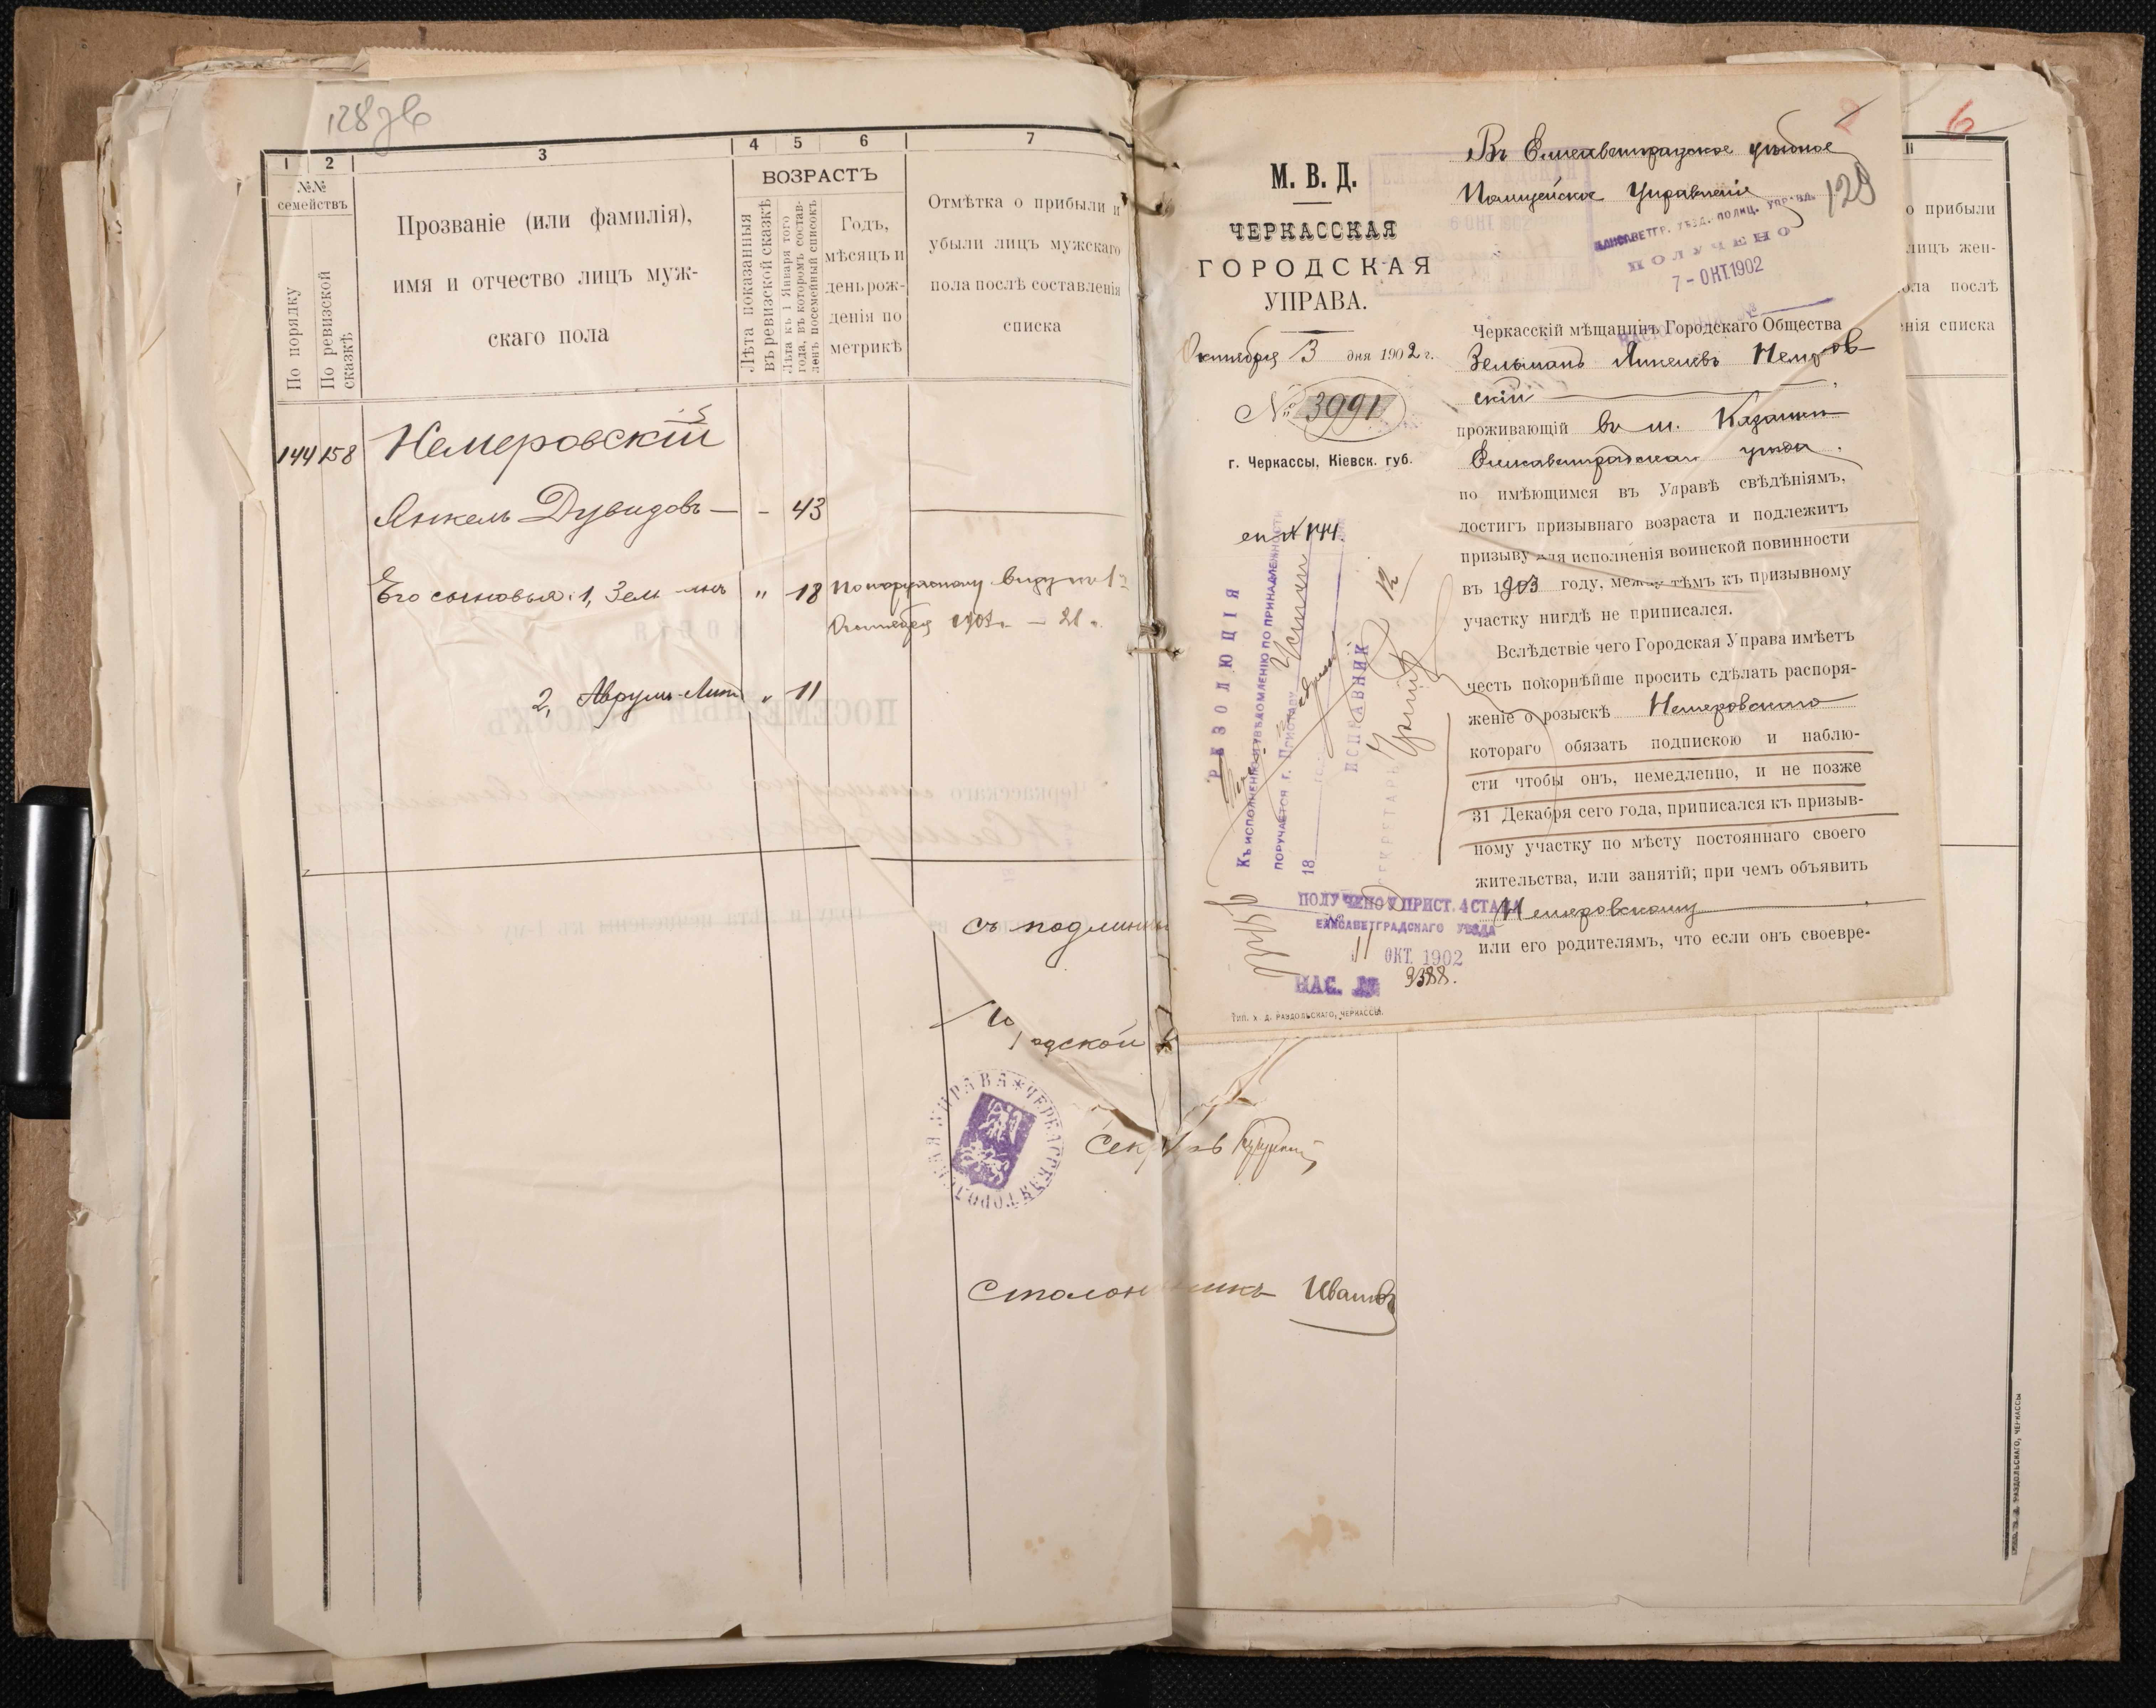 128 зв
1
2
3
4
5
6
7
№№
семействъ
По порядку
По ревизской
сказкѣ
Прозваніе (или фамилія),
имя и отчество лицъ муж-
скаго пола
ВОЗРАСТЪ
Лѣта показанныя
въ ревизской сказкѣ
Лѣта къ 1 Января того
года, въ которомъ состав-
ленъ посемейный списокъ
Годъ,
мѣсяцъ и
день рож-
денія по
метрикѣ
Отмѣтка о прибыли и
убыли лицъ мужскаго
пола послѣ составленія
списка
144 158 Немеровскій
Янкель Дувидовъ — - 43
Его сыновья: 1, Зельманъ " 18
Октября 1902 — 21
2, Аврумъ " 11
съ подлинны
Секр
Столон никъ Ивановъ
ЧЕРКАССКАЯ ГОРОДСКАЯ УПРАВА
М. В. Д.
ЧЕРКАССКАЯ
ГОРОДСКАЯ
УПРАВА.
Октября 3 дня 1902 г.
№ 3991
г. Черкассы, Кіевск. губ.
сп № 144
РЕЗОЛЮЦІЯ
Къ исполненію и увѣдомленію по принадлежности
поручается г. Приставу
18
ИСПРАВНИК
СЕКРЕТАРЬ
ПОЛУЧЕНО У ПРИСТ. 4 СТАНА
ЕЛИСАВЕТГРАДСКАГО УѢЗДА
11 ОКТ. 1902
НАС. № 9388.
Тип. Х. Д. Раздольскаго, Черкассы.
6
129
Въ Елисаветградское уѣздное
Полицейское Управленіе
ЕЛИСАВЕТГР. УѢЗД. ПОЛИЦ. УПРАВЛ.
ПОЛУЧЕНО
7 - ОКТ. 1902
Черкасскій мѣщанинъ Городскаго Общества
Зельманъ Янкелевъ Немеров-
скій
проживающій въ м. Казанки
Елисаветградскаго уѣзда.
по имѣющимся въ Управѣ свѣдѣніямъ,
достигъ призывнаго возраста и подлежитъ
призыву для исполненія воинской повинности
въ 1903 году, между тѣмъ къ призывному
участку нигдѣ не приписался.
Вслѣдствіе чего Городская Управа имѣетъ
честь покорнѣйше просить сдѣлать распоря-
женіе о розыскѣ Немеровскаго
котораго обязать подпискою и наблю-
сти чтобы онъ, немедленно, и не позже
31 Декабря сего года, приписался къ призыв-
ному участку по мѣсту постояннаго своего
жительства, или занятій; при чемъ объявить
Немеровскому
или его родителямъ, что если онъ своевре-
11
о прибыли
лицъ жен-
ола послѣ
енія списка